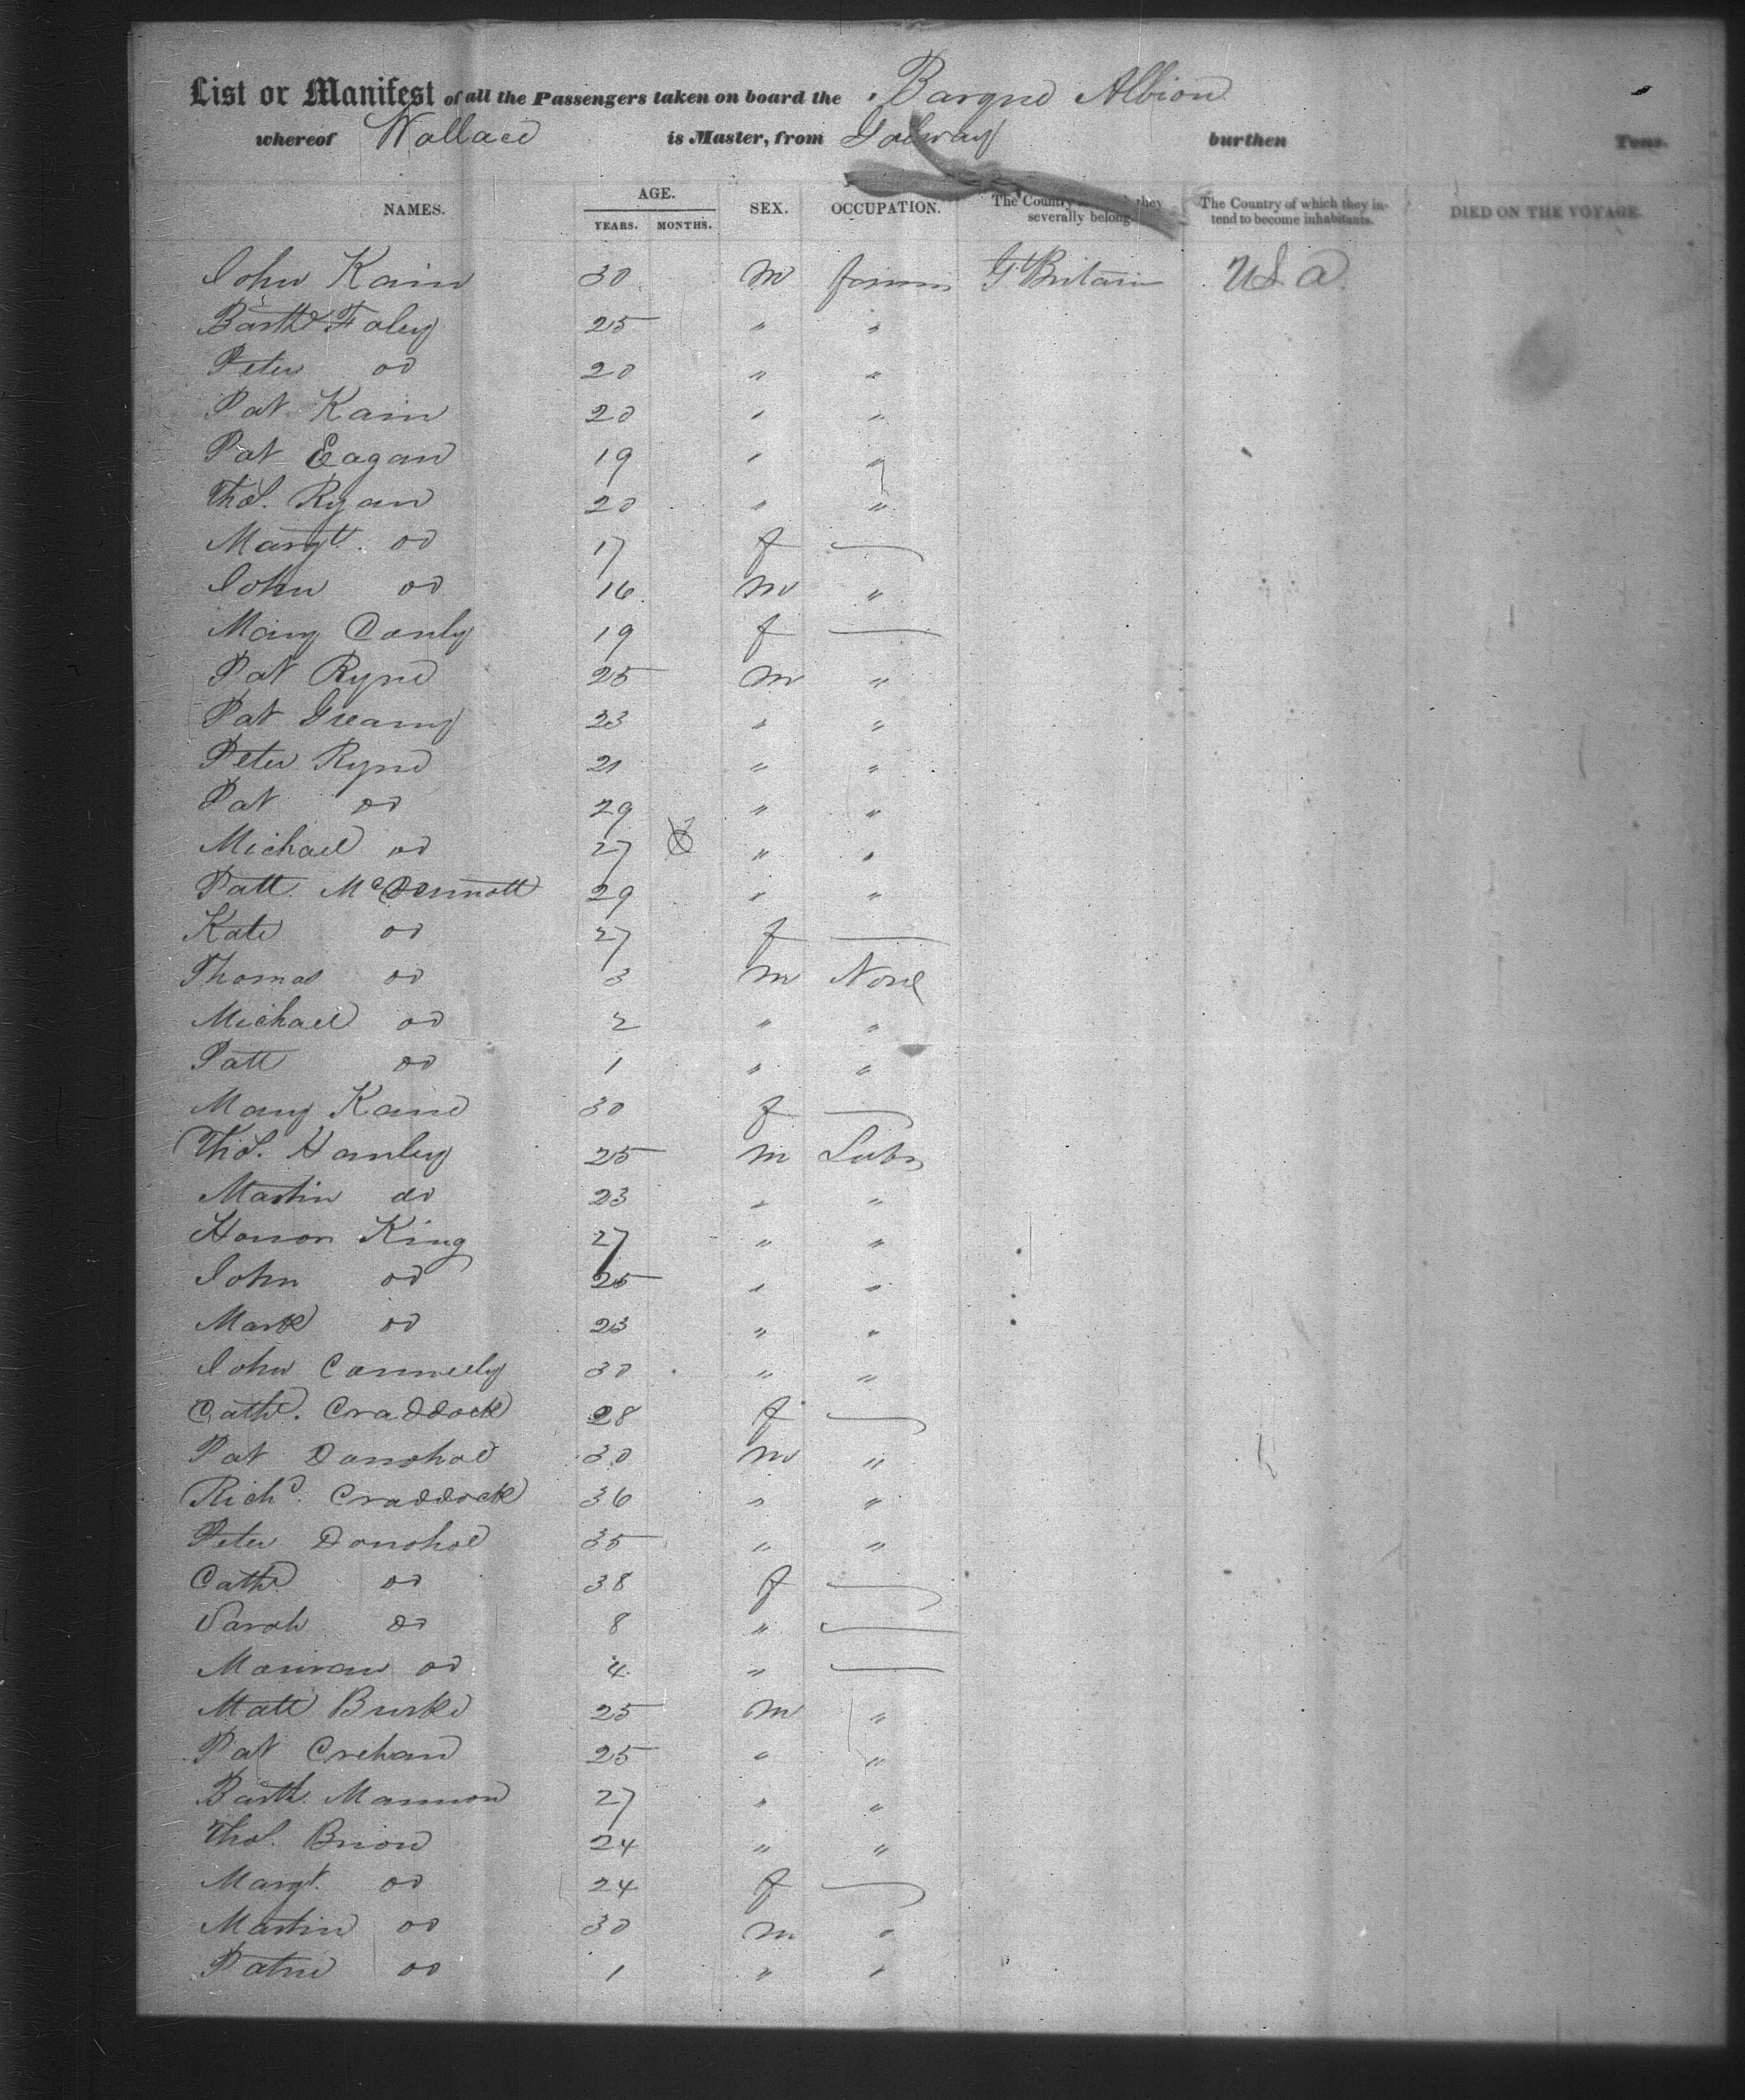 List or Manifest of all the Passengers taken on board the Barque Albion
whereof Wallace is Master, from Galway burthen Tons.
NAMES. AGE. YEARS. MONTHS. SEX. OCCUPATION. The Country to which they severally belong. The Country of which they intend to become inhabitants. DIED ON THE VOYAGE.
John Kain 30 m farmer Gt Britain U S a
Barth Foley 25 " "
Peter do 20 " "
Pat Kain 20 " "
Pat Eagan 19 " "
Thos. Ryan 20 " "
Margt. do 17 f —
John do 16 m "
Mary Conly 19 f —
Pat Ryne 25 m "
Pat Greany 23 " "
Peter Ryne 21 " "
Pat do 29 " "
Michael do 27 " "
Patt McDermott 29 " "
Kate do 27 f —
Thomas do 3 m None
Michael do 2 " "
Patt do 1 " "
Mary Kane 30 f —
Thos. Hanley 25 m Labr
Martin do 23 " "
Honor King 27 " "
John do 25 " "
Mark do 23 " "
John Conneely 30 " "
Cathe. Craddock 28 f —
Pat Donohoe 30 m "
Richd. Craddock 36 " "
Peter Donohoe 35 " "
Cathe do 38 f —
Sarah do 8 " —
do 4 " —
Matt Burke 25 m "
Pat Crehan 25 " "
Barth. Mannion 27 " "
Thos. Brion 24 " "
Margt. do 24 f —
Martin do 30 m "
do 1 " "